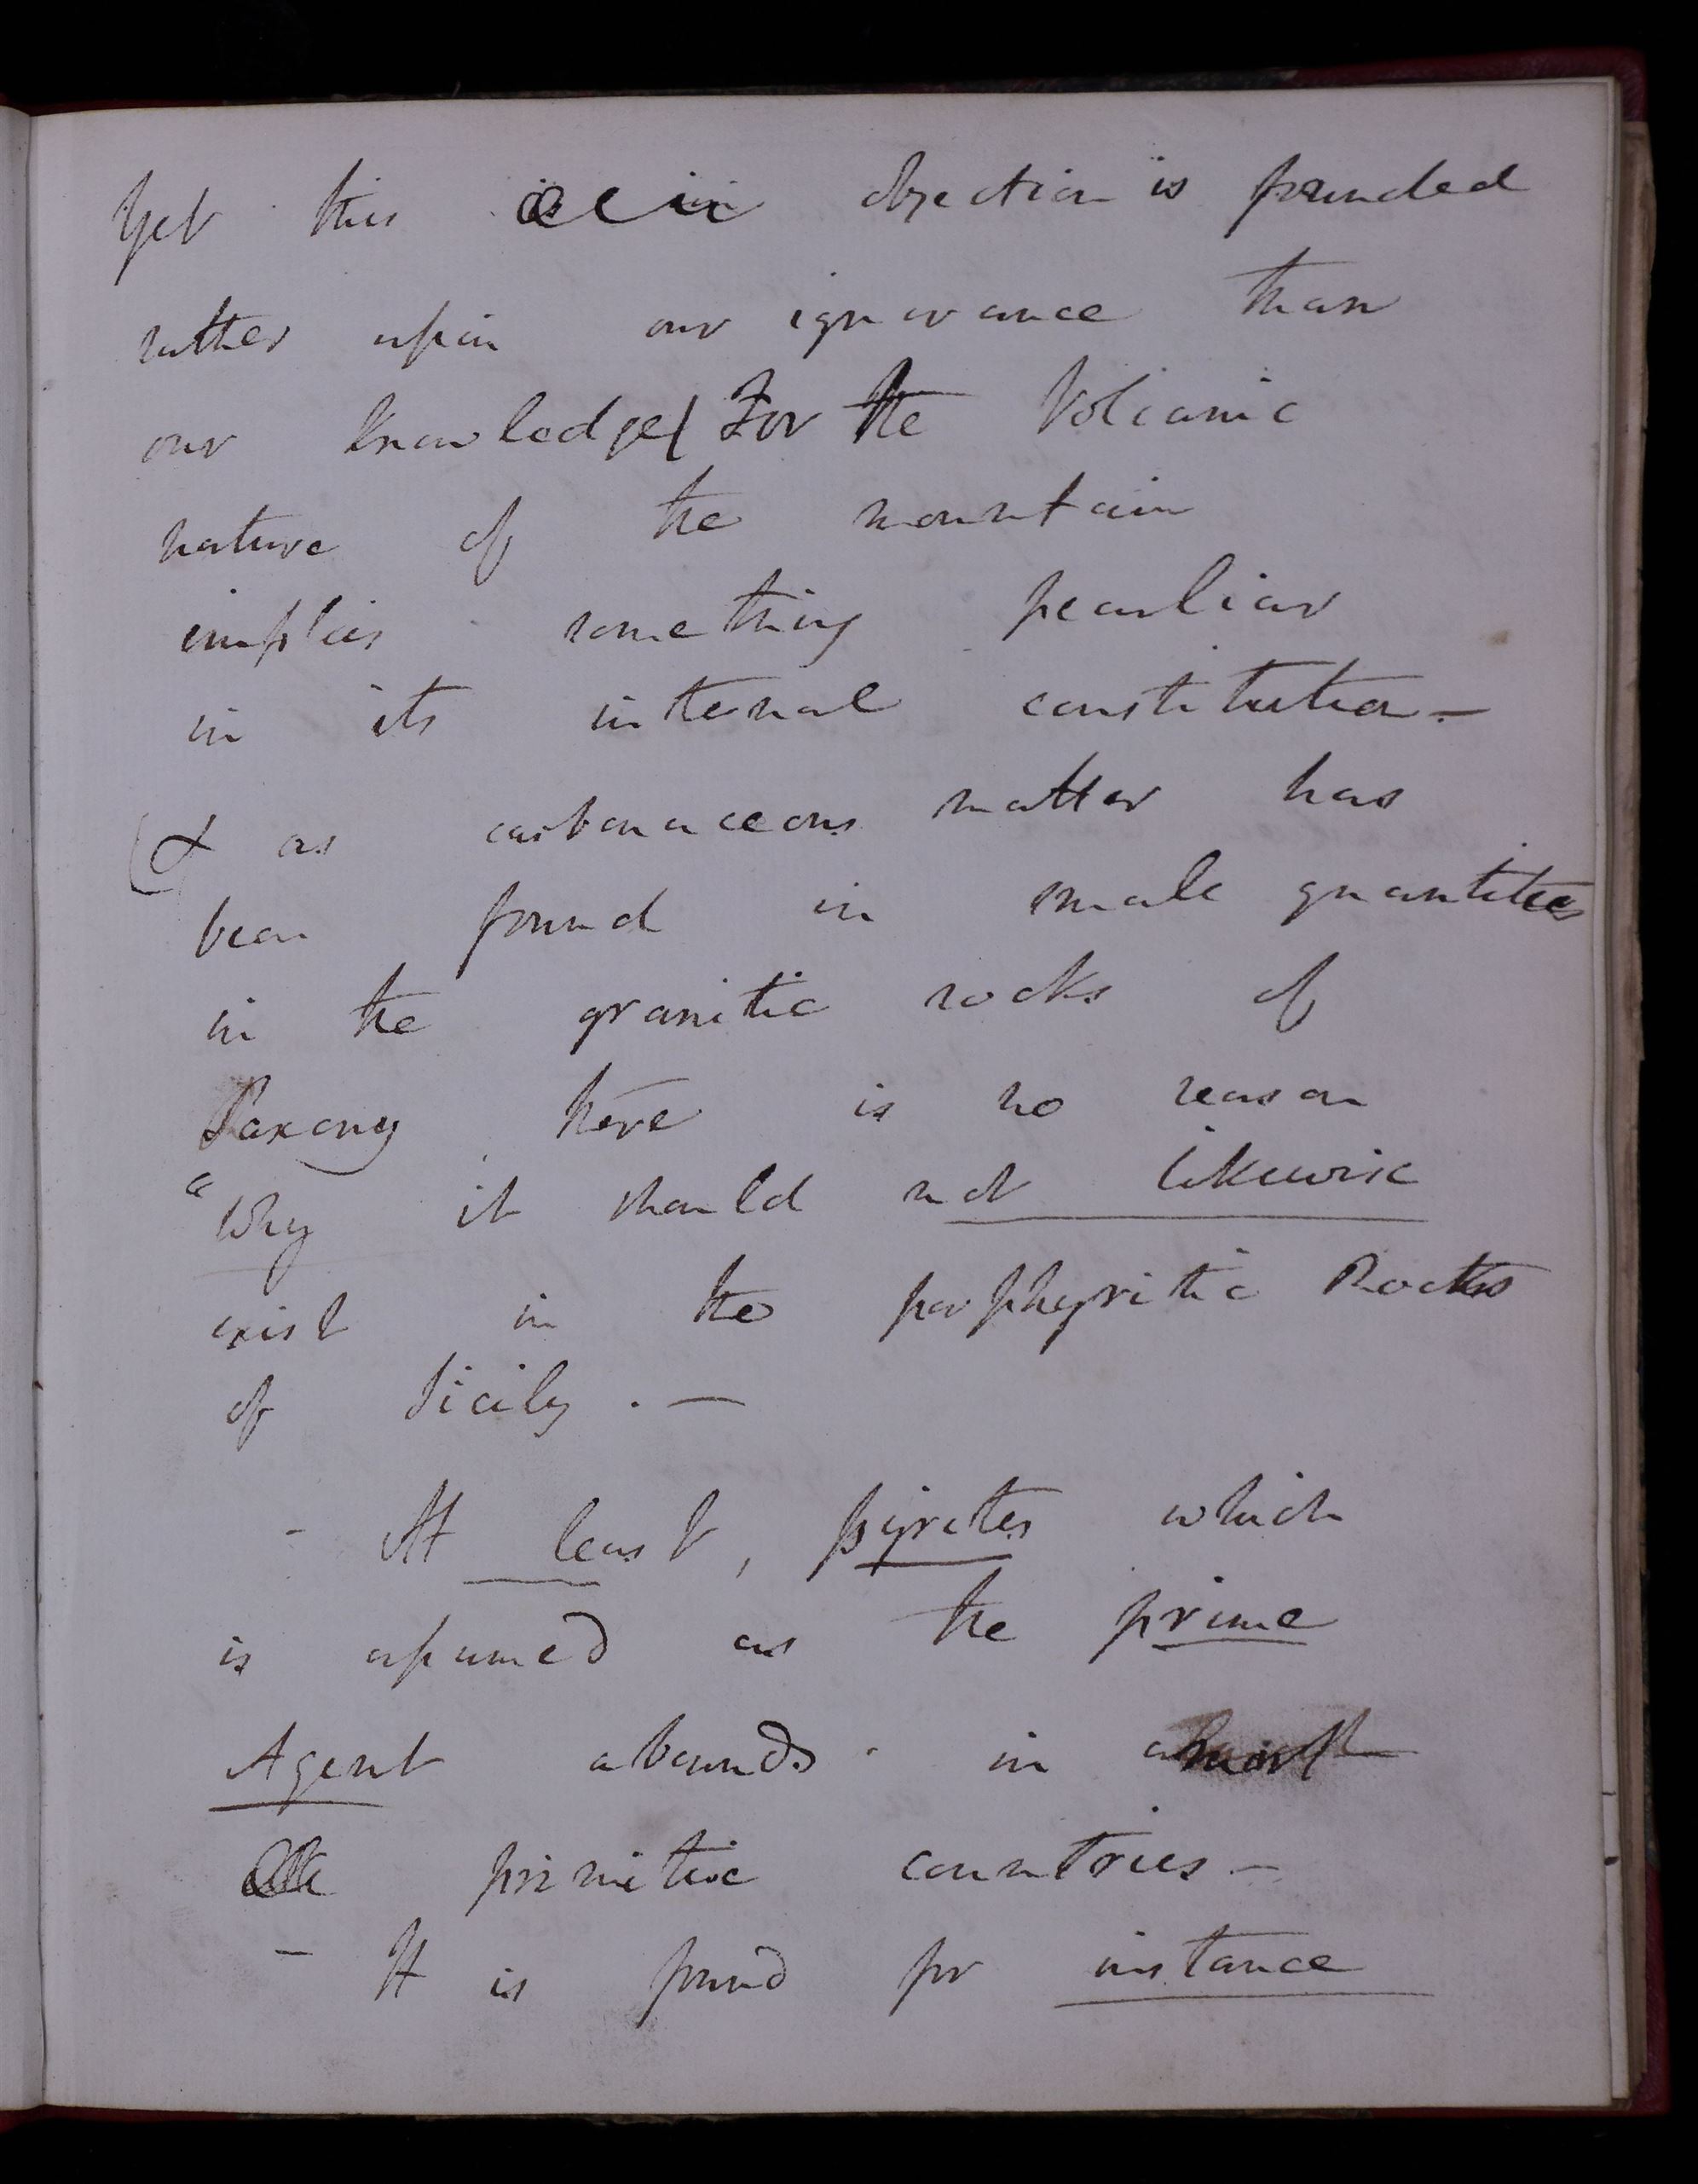 Yet this objection is founded
rather upon our ignorance than
our knowledge/ For the Volcanic
nature of the mountain
implies something peculiar
in its internal constitution –
(& as carbonaceous matter has
been found in small quantities
in the granitic rocks of
Saxony there is no reason
"Why it should not likewise
exist in the porphyritic Rocks
of Sicily. –
- At least, pyrites which
is assumed as the prime
Agent abounds in
primitive countries –
– It is found for instance